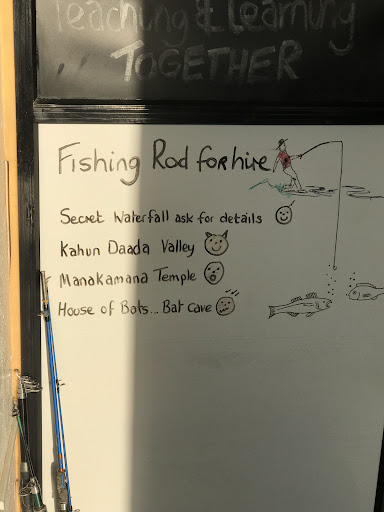 Teaching & Learning
TOGETHER
Fishing Rod for hire
Secret Waterfall ask for details
Kahun Daada Valley
Manakamana Temple
House of Bats... Bat cave